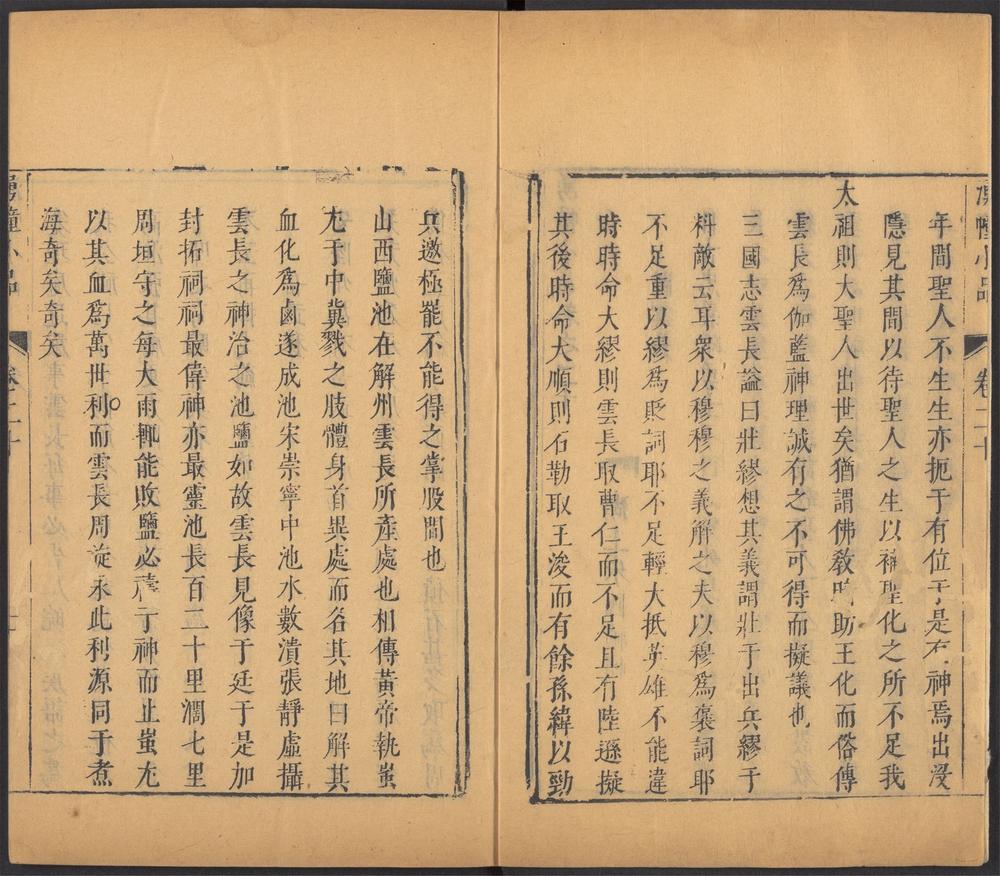 湧幢小品 卷二十
年間聖人不生生亦扼于有位于是有神焉出沒
隱見其間以待聖人之生以補聖化之所不足我
太祖則大聖人出世矣猶謂佛敎助王化而俗傳
雲長爲伽藍神理誠有之不可得而擬議也
三國志雲長謚曰壯繆想其義謂壯于出兵繆于
料敵云耳衆以穆穆之義解之夫以穆爲褒詞耶
不足重以繆爲貶詞耶不足輕大抵英雄不能違
時時命大繆則雲長取曹仁而不足且有陸遜擬
其後時命大順則石勒取王浚而有餘孫緯以勁
兵邀極罷不能得之掌股間也
山西鹽池在解州雲長所產處也相傳黃帝執蚩
尤于中冀戮之肢體身首異處而名其地曰解其
血化爲鹵遂成池宋崇寧中池水數潰張靜虛攝
雲長之神治之池鹽如故雲長見像于廷于是加
封拓祠祠最偉神亦最靈池長百二十里濶七里
周垣守之每大雨輒能敗鹽必禱于神而止蚩尤
以其血爲萬世利而雲長周旋永此利源同于煮
海奇矣奇矣
湧幢小品 卷二十